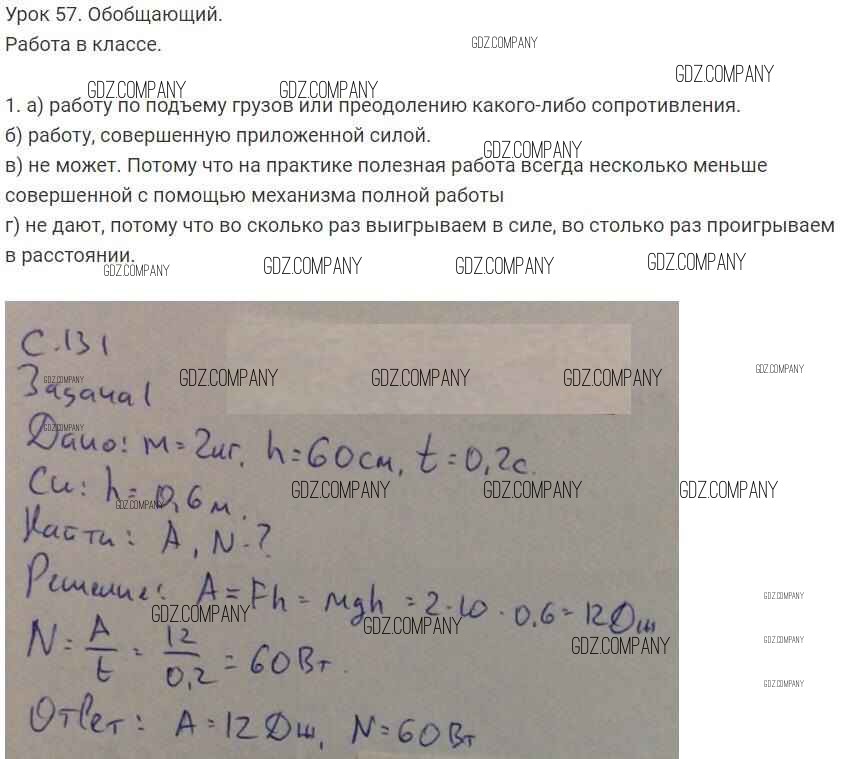 Урок 57. Обобщающий.
Работа в классе.
GDZ.COMPANY
GDZ.COMPANY
GDZ.COMPANY GDZ.COMPANY
1. а) работу по подъему грузов или преодолению какого-либо сопротивления.
б) работу, совершенную приложенной силой.
GDZ.COMPANY
в) не может. Потому что на практике полезная работа всегда несколько меньше
совершенной с помощью механизма полной работы
г) не дают, потому что во сколько раз выигрываем в силе, во столько раз проигрываем
в расстоянии.
GDZ.COMPANY GDZ.COMPANY GDZ.COMPANY GDZ.COMPANY
С.131
GDZ.COMPANY
GDZ.COMPANY GDZ.COMPANY GDZ.COMPANY GDZ.COMPANY
Задача 1
GDZ.COMPANY
Дано: m=2кг, h=60см, t=0,2с.
Си: h=0,6м.
GDZ.COMPANY GDZ.COMPANY GDZ.COMPANY
GDZ.COMPANY
Найти: A, N-?
Решение: A=Fh=mgh=2·10·0,6=12Дж
GDZ.COMPANY
GDZ.COMPANY GDZ.COMPANY
N=A/t=12/0,2=60Вт.
GDZ.COMPANY GDZ.COMPANY
GDZ.COMPANY
Ответ: A=12Дж, N=60Вт